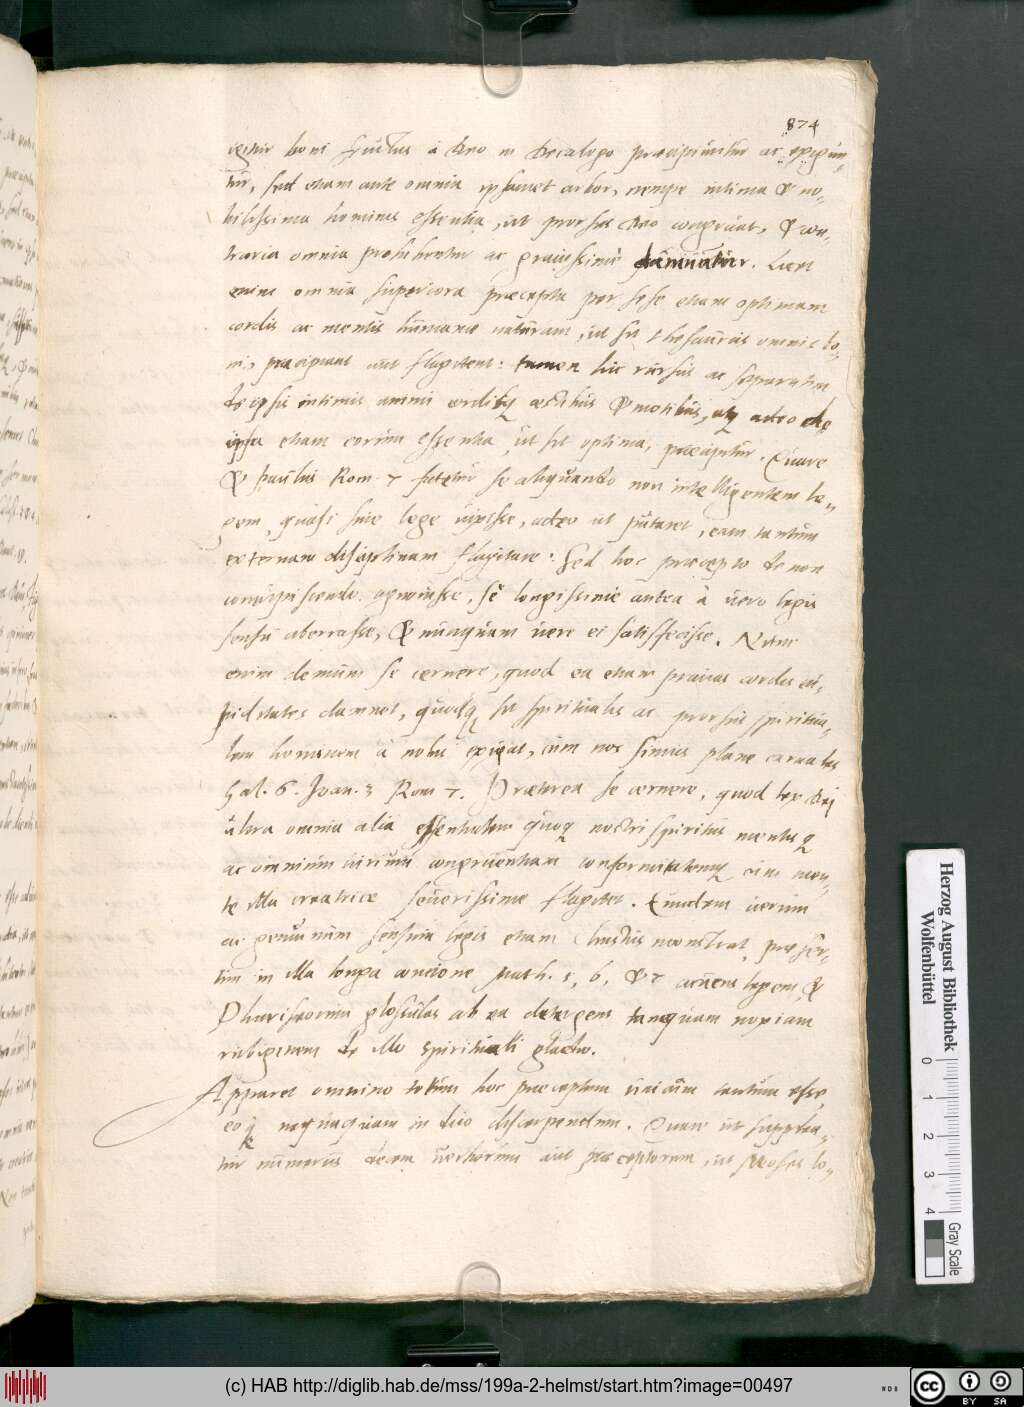 874
boni fructus a Deo in Decalogo praecipiuntur ac exigun-
tur, sed etiam ante omnia ipsamet arbor, nempe intima & no-
bilissima hominis essentia, ut prorsus Deo congruat, & con-
traria omnia prohibentur ac gravissime damnatur. Licet
enim omnia superiora praecepta per sese etiam optimam
cordis ac mentis humanae naturam, ut sit thesaurus omnis bo-
ni, praecipiant aut flagitent: tamen hic rursus ac separatim
de ipsis intimis animi cordisq affectibus & motibus, atq adeo de
ipsa etiam eorum essentia, ut sit optima, praecipitur. Quare
& Paulus Rom. 7 fatetur se aliquando non intelligentem le-
gem, quasi sine lege vixisse, adeo ut putaret, eam tantum
externam disciplinam flagitare: Sed hoc praecepto de non
concupiscendo agnovisse, se longissime antea à vero legis
sensu aberrasse, & nunquam vere ei satisfecisse. Nunc
enim demum se cernere, quod ea etiam pravas cordis cu-
piditates damnet, quodq sit spiritualis ac prorsus spiritua-
lem hominem à nobis exigat, cum nos simus plane carnales
Gal. 6. Joan. 3 Rom 7. Praeterea se cernere, quod lex Dei
ultra omnia alia essentialem quoq nostri spiritus mentisq
ac omnium virium congruentiam conformitatemq cum men-
te illa creatrice severissime flagitet. Eundem verum
ac genuinum sensum legis etiam Christus monstrat, praeser-
tim in illa longa concione Math. 5, 6, & 7 acuens legem, &
Pharisaeorum glossulas ab ea detergens tanquam noxiam
rubiginem de illo spirituali gladio.
Apparet omnino totum hoc praeceptum unicum tantum esse,
eoq nequaquam in duo discerpendum. Quare ut supplea-
tur numerus decem verborum aut praeceptorum, ut Moses lo-
Herzog August Bibliothek
Wolfenbüttel
0 1 2 3 4
Gray Scale
(c) HAB http://diglib.hab.de/mss/199a-2-helmst/start.htm?image=00497
cc BY SA